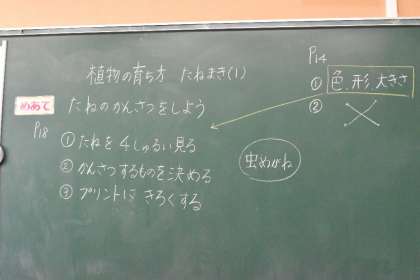 植物の育ち方 たねまき(1)
めあて たねのかんさつをしよう
P18
① たねを4しゅるい見る
② かんさつするものを決める
③ プリントに きろくする
虫めがね
P14
① 色、形、大きさ
②